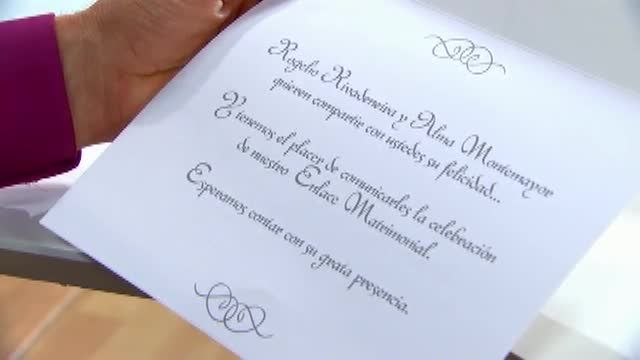 Rogelio Rivadeneira y Alma Montemayor
quieren compartir con ustedes su felicidad...
Y tenemos el placer de comunicarles la celebración
de nuestro Enlace Matrimonial.
Esperamos contar con su grata presencia.